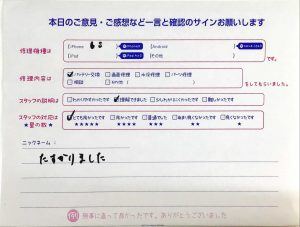 本日のご意見・ご感想など一言と確認のサインお願いします
修理機種は
iPhone 6s
Android
iPad
その他
です。
修理内容は
バッテリー交換 画面修理 水没修理 パーツ修理
相談 その他
をしてもらいました。
スタッフの説明は
わかりやすかったです 理解できました 少しわかりにくかったです 難しかったです
スタッフの対応は
★星の数★
とても良かったです 良かったです 普通でした あまり良くなかったです 良くなかったです
★★★★★ ★★★★ ★★★ ★★ ★
ニックネーム:
たすかりました
無事に直って良かったです。ありがとうございました